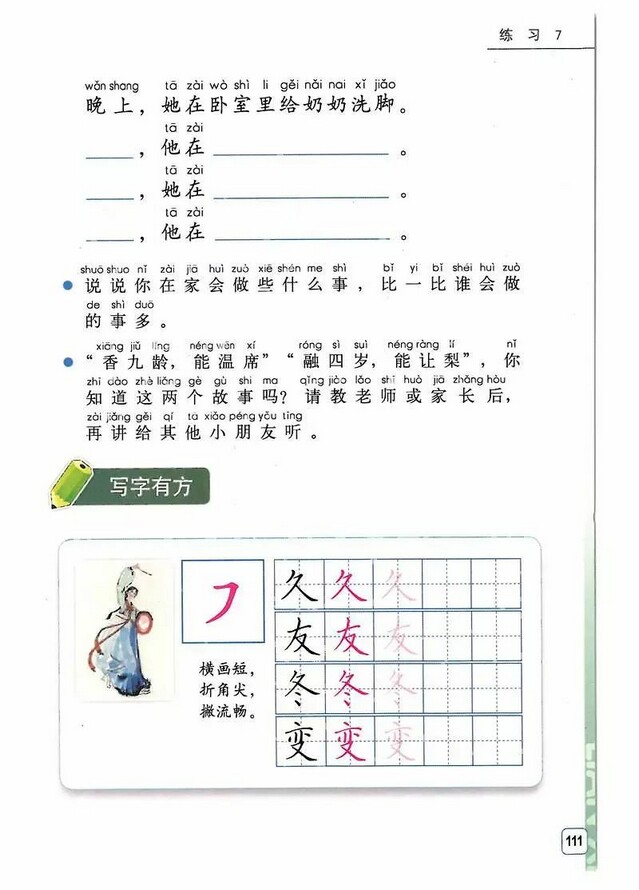 练 习 7
wǎn shang tā zài wò shì li gěi nǎi nai xǐ jiǎo
晚上，她在卧室里给奶奶洗脚。
tā zài
____，他在______________。
tā zài
____，她在______________。
tā zài
____，他在______________。
shuō shuo nǐ zài jiā huì zuò xiē shén me shì bǐ yi bǐ shéi huì zuò
● 说说你在家会做些什么事，比一比谁会做
de shì duō
的事多。
xiāng jiǔ líng néng wēn xí róng sì suì néng ràng lí nǐ
● “香九龄，能温席”“融四岁，能让梨”，你
zhī dào zhè liǎng gè gù shi ma qǐng jiào lǎo shī huò jiā zhǎng hòu
知道这两个故事吗？请教老师或家长后，
zài jiǎng gěi qí tā xiǎo péng yǒu tīng
再讲给其他小朋友听。
写字有方
㇇ 久 久 久
友 友 友
横画短，
折角尖，
撇流畅。
冬 冬 冬
变 变 变
111